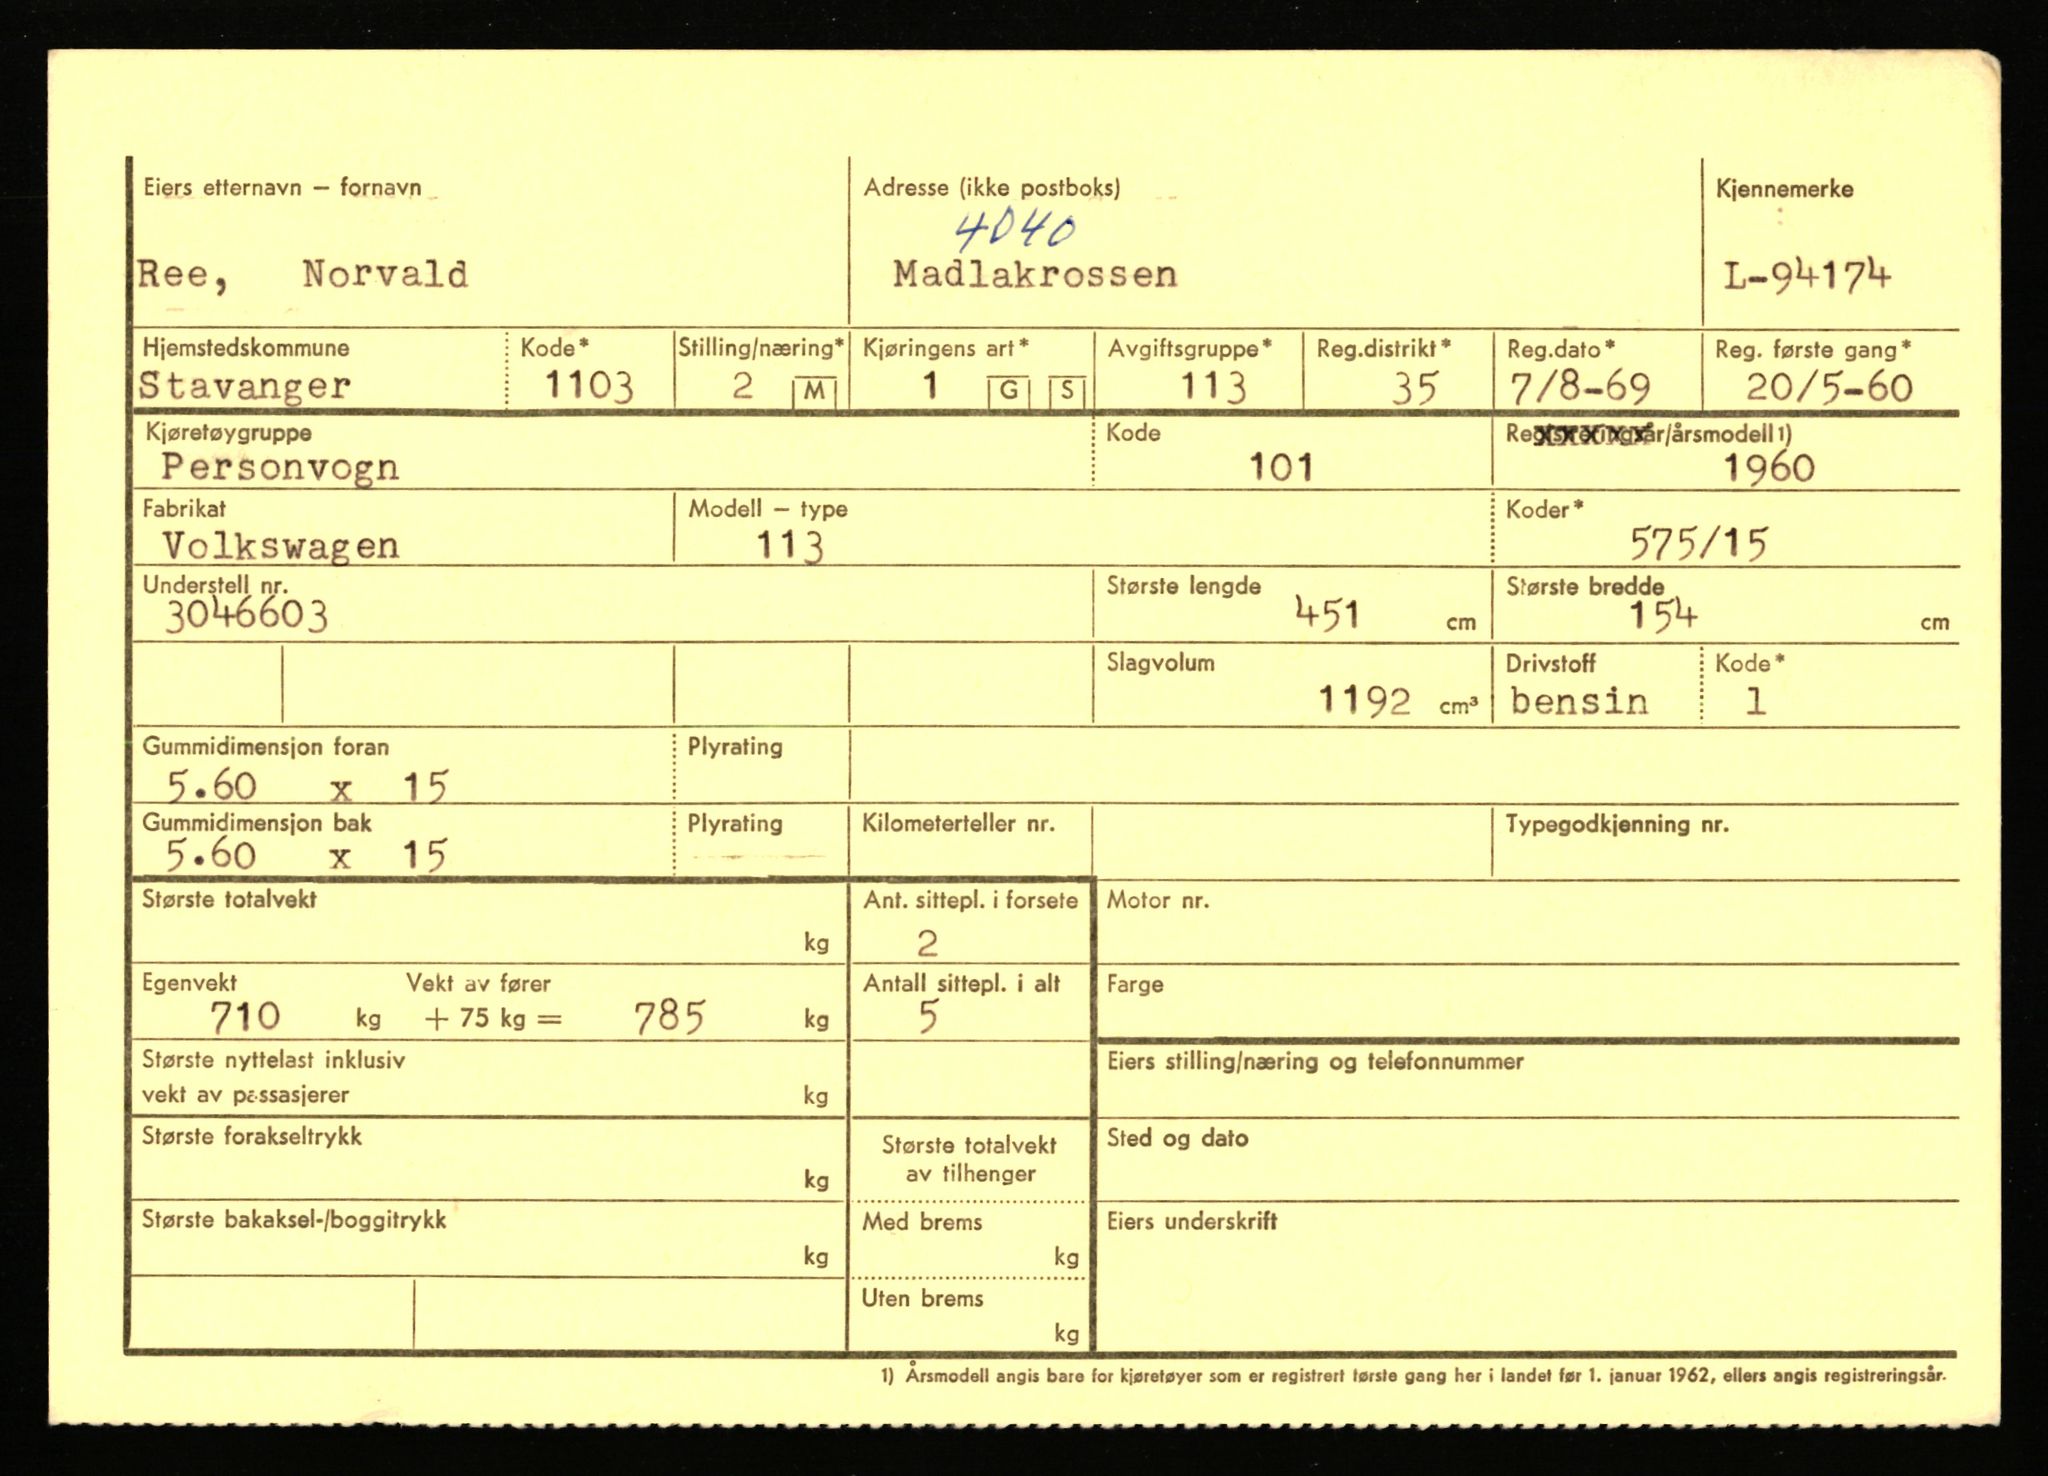 Eiers etternavn – fornavn Adresse (ikke postboks) Kjennemerke
4040
Ree, Norvald Madlakrossen L-94174
Hjemstedskommune Kode* Stilling/næring* Kjøringens art* Avgiftsgruppe* Reg.distrikt* Reg.dato* Reg. første gang*
Stavanger 1103 2 M 1 G S 113 35 7/8-69 20/5-60
Kjøretøygruppe Kode Registreringsår/årsmodell 1)
Personvogn 101 1960
Fabrikat Modell – type Koder*
Volkswagen 113 575/15
Understell nr. Største lengde Største bredde
3046603 451 cm 154 cm
Slagvolum Drivstoff Kode*
1192 cm³ bensin 1
Gummidimensjon foran Plyrating
5.60 x 15
Gummidimensjon bak Plyrating Kilometerteller nr. Typegodkjenning nr.
5.60 x 15
Største totalvekt Ant. sittepl. i forsete Motor nr.
kg 2
Egenvekt Vekt av fører Antall sittepl. i alt Farge
710 kg + 75 kg = 785 kg 5
Største nyttelast inklusiv Eiers stilling/næring og telefonnummer
vekt av passasjerer kg
Største forakseltrykk Største totalvekt Sted og dato
kg av tilhenger
Største bakaksel-/boggitrykk Med brems Eiers underskrift
kg kg
Uten brems
kg
1) Årsmodell angis bare for kjøretøyer som er registrert første gang her i landet før 1. januar 1962, ellers angis registreringsår.